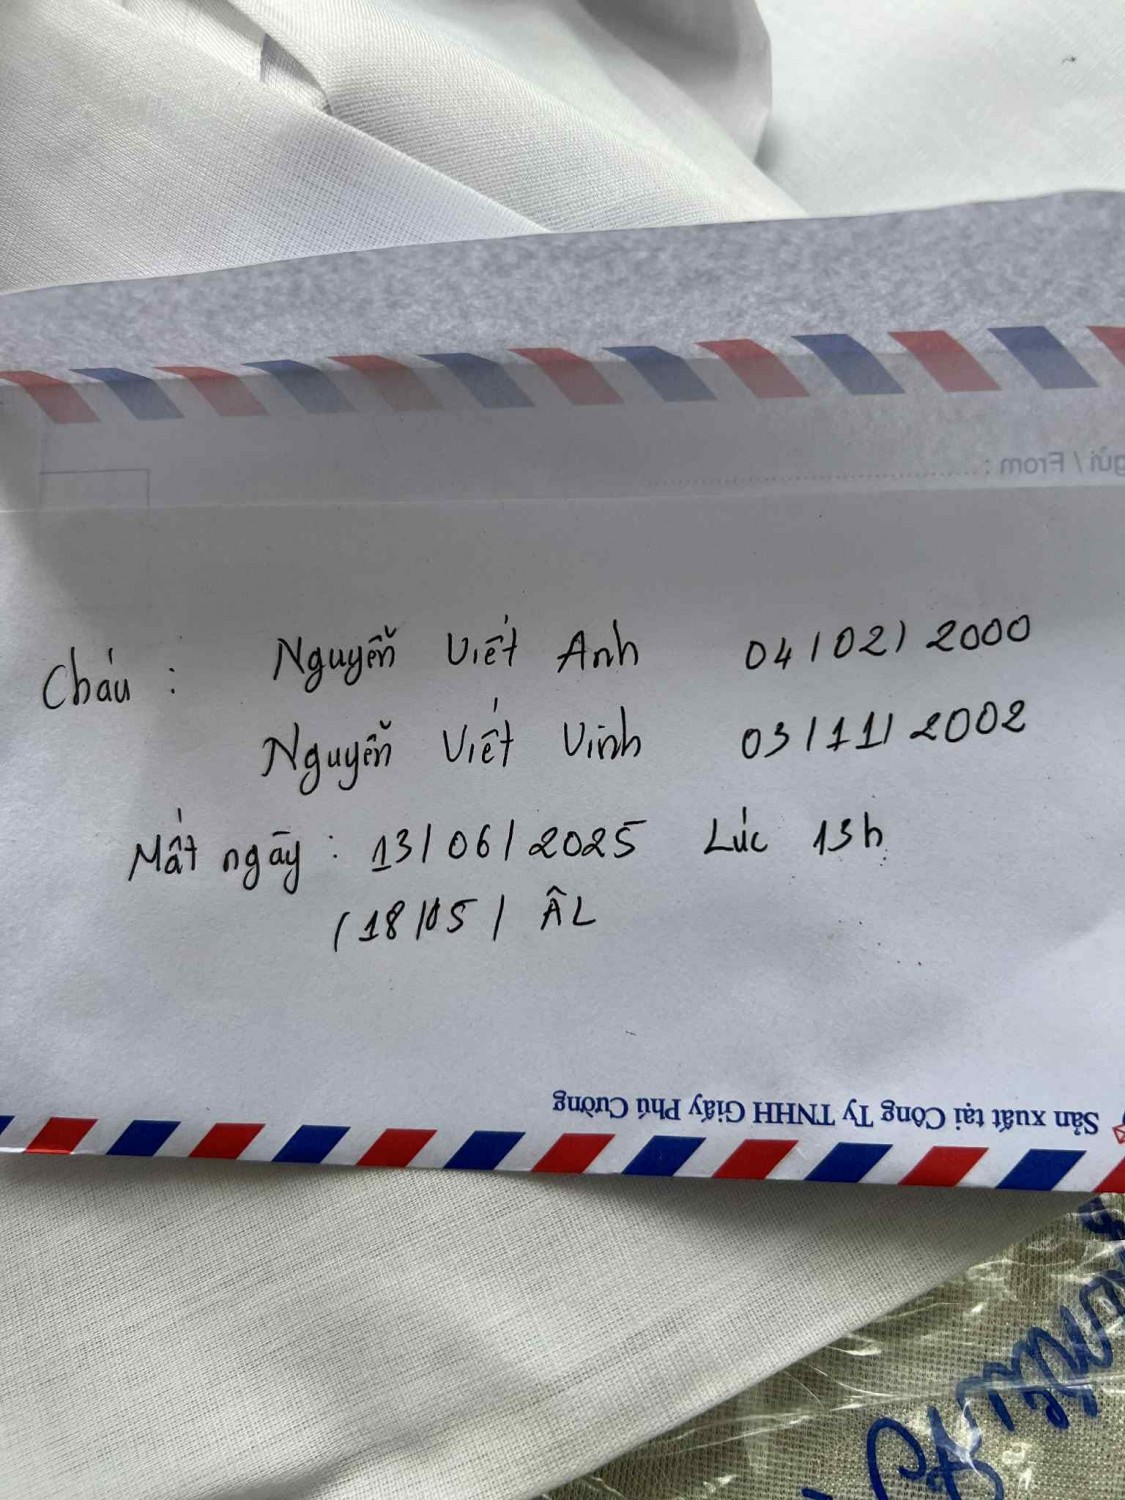 gửi / From :
Cháu : Nguyễn Viết Anh 04/02/2000
Nguyễn Viết Vinh 03/11/2002
Mất ngày : 13/06/2025 Lúc 13h
(18/05) ÂL
Sản xuất tại Công Ty TNHH Giấy Phú Cường